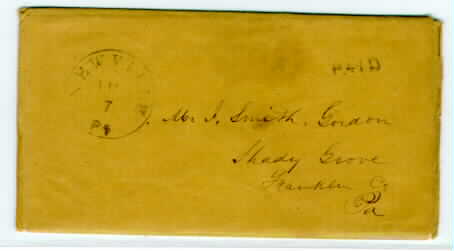 PAID
7
Pa
Mr J. Smith Gordon
Shady Grove
Franklin Co
Pa